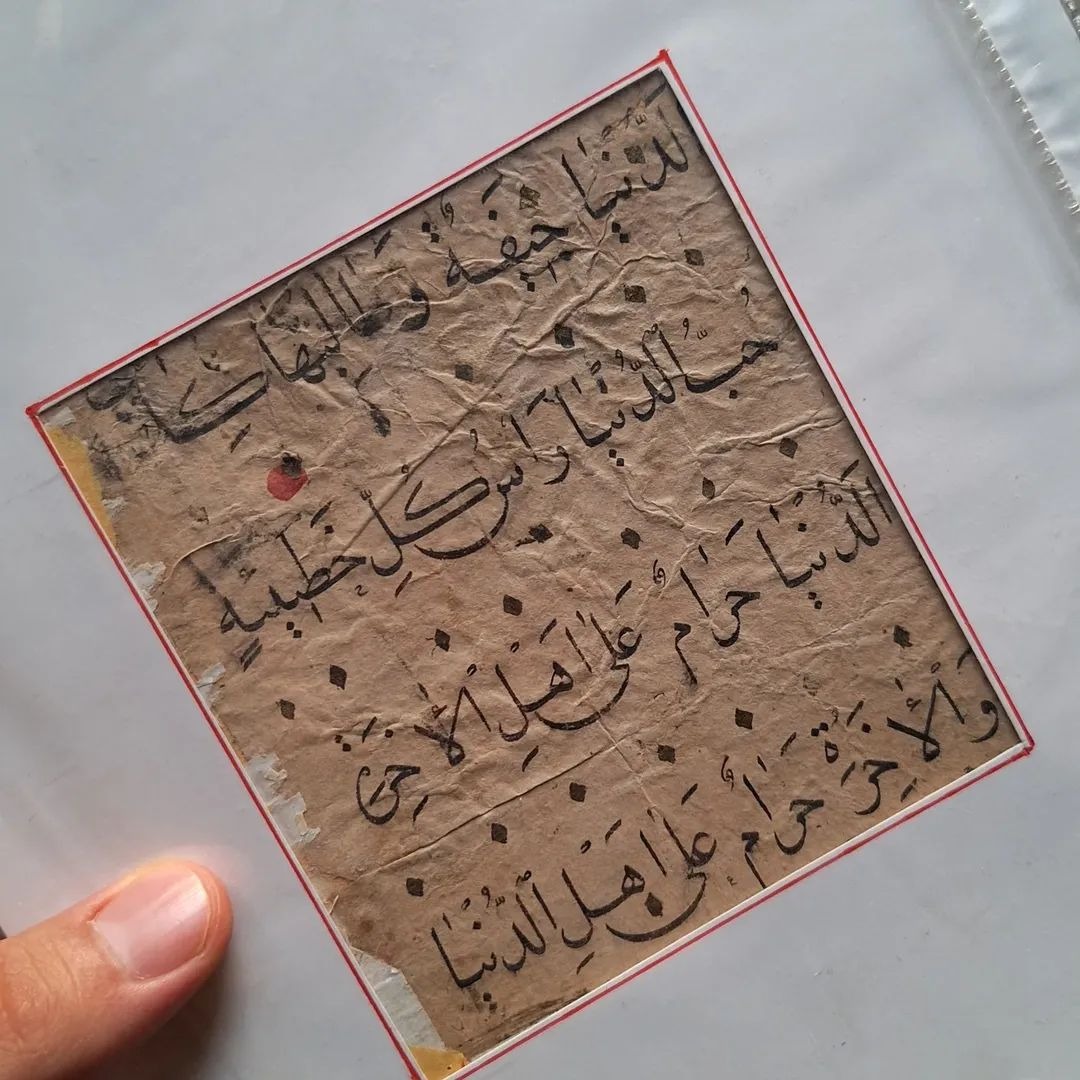 اَلدُّنْيَا جِيفَةٌ وَطَالِبُهَا كِلَابٌ
حُبُّ الدُّنْيَا رَأْسُ كُلِّ خَطِيئَةٍ
اَلدُّنْيَا حَرَامٌ عَلَى اَهْلِ الْاٰخِرَةِ
وَالْاٰخِرَةُ حَرَامٌ عَلَى اَهْلِ الدُّنْيَا